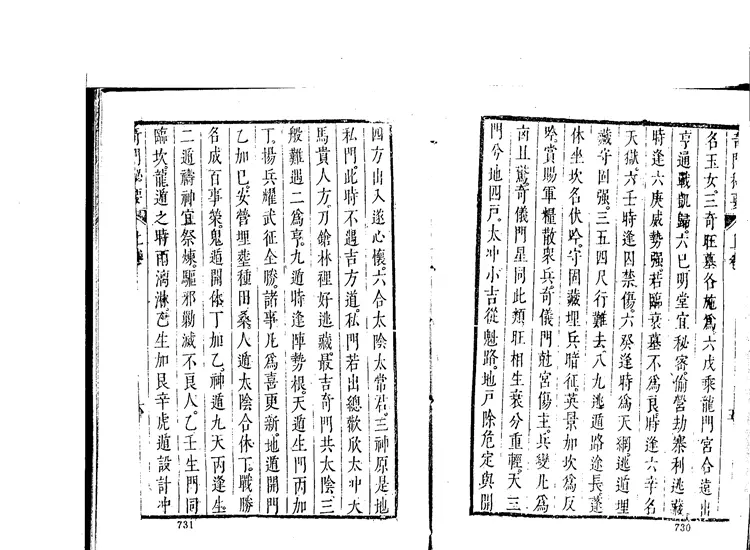 奇門秘要 上卷
名玉女三奇旺墓各施為六戊乘龍門宮合遠出
亨通戰凱歸六巳明堂宜秘密偷營劫寨利逃藏
時逢六庚威勢强若臨衰墓不為良時逢六辛名
天獄六壬時逢囚禁傷六癸逢時為天網逃遁埋
藏守固强三五四尺行難去八九逃遁路途長蓬
休坐坎名伏吟守固藏埋兵暗征英景加坎為反
吟賞賜軍糧散衆兵奇儀門尅宮傷主兵變凢為
凶且驚奇儀門星同此類旺相生衰分重輕天三
門兮地四戸太冲小吉從魁路地戸除危定與開
730
四方出入遂心懷六合太陰太常君三神原是地
私門此時不遇吉方道私門若出總歡欣太冲天
馬貴人方刀鎗林裡好逃藏最吉奇門共太陰三
般難遇二為亨九遁時逢陣勢根天遁生門丙加
丁揚兵耀武征全勝諸事凢為喜更新地遁開門
乙加巳安營埋塟種田桑人遁太陰合休丁戰勝
名成百事榮鬼遁開休丁加乙神遁九天丙逢生
二遁禱神宜祭煉驅邪勦滅不良人乙壬生門同
臨坎龍遁之時雨漓淋乙生加艮辛虎遁設計冲
奇門秘要 上卷 六
731